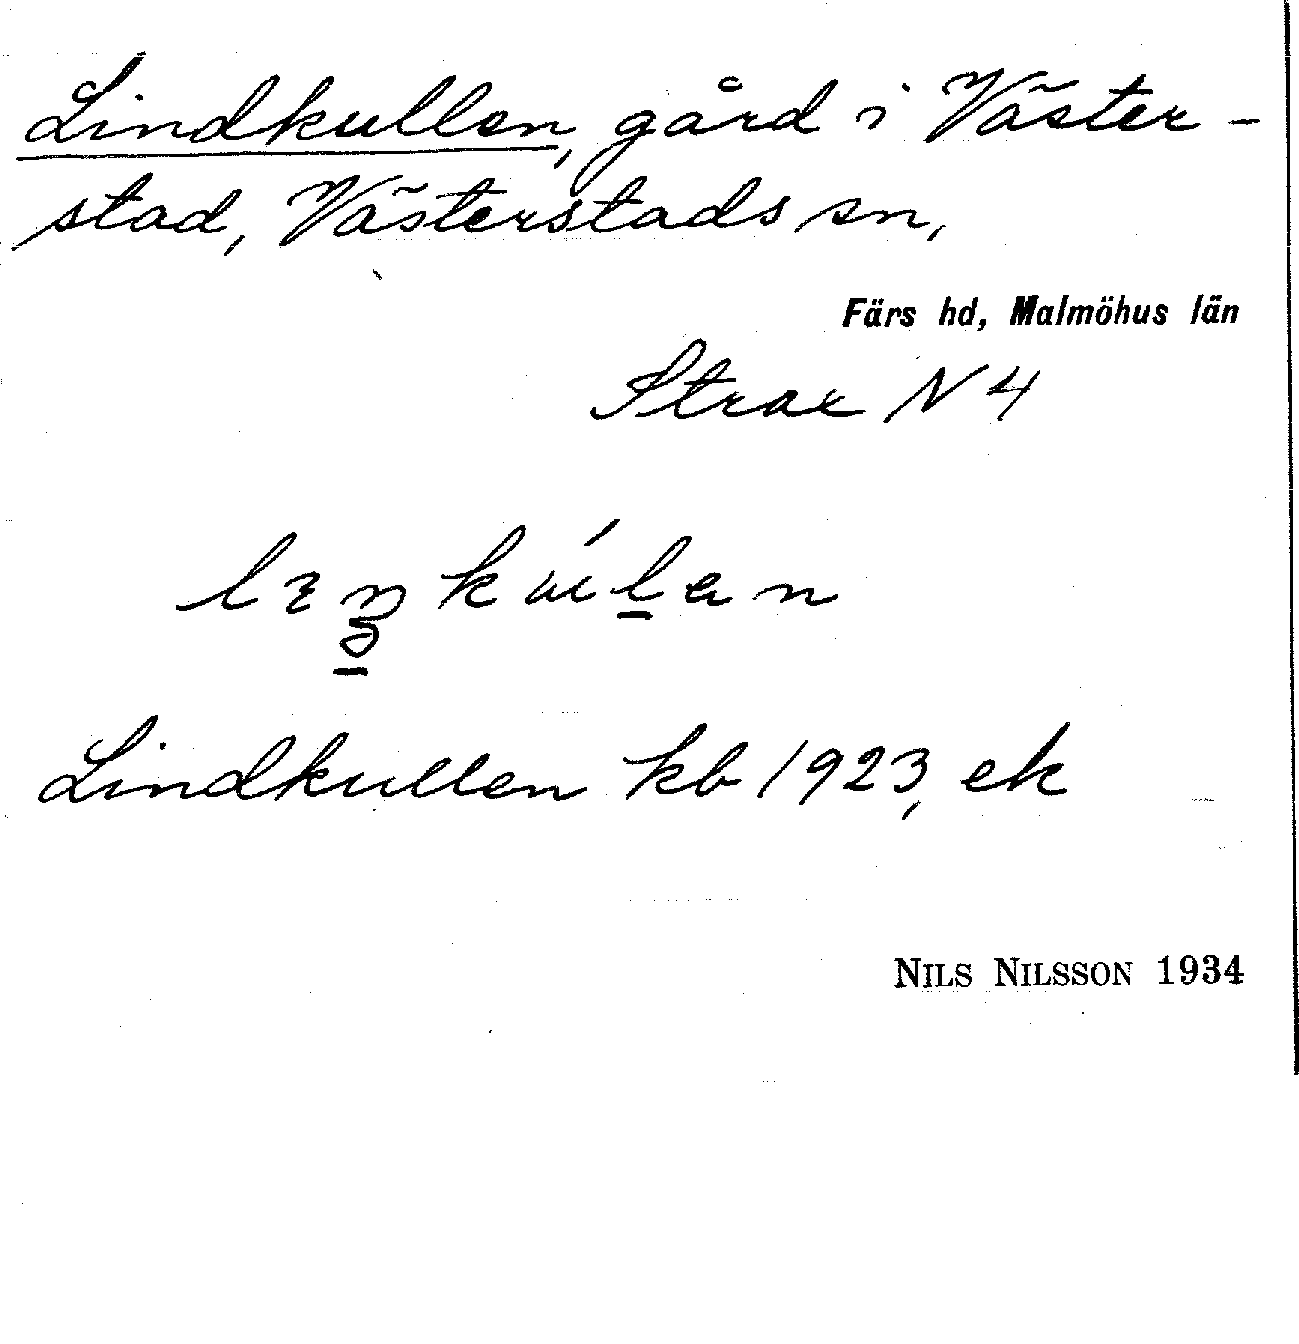 Lindkullen, gård i Väster-
stad, Västerstads sn,
Färs hd, Malmöhus län
Strax N 4
Lindkullen kb 1923, ek
NILS NILSSON 1934